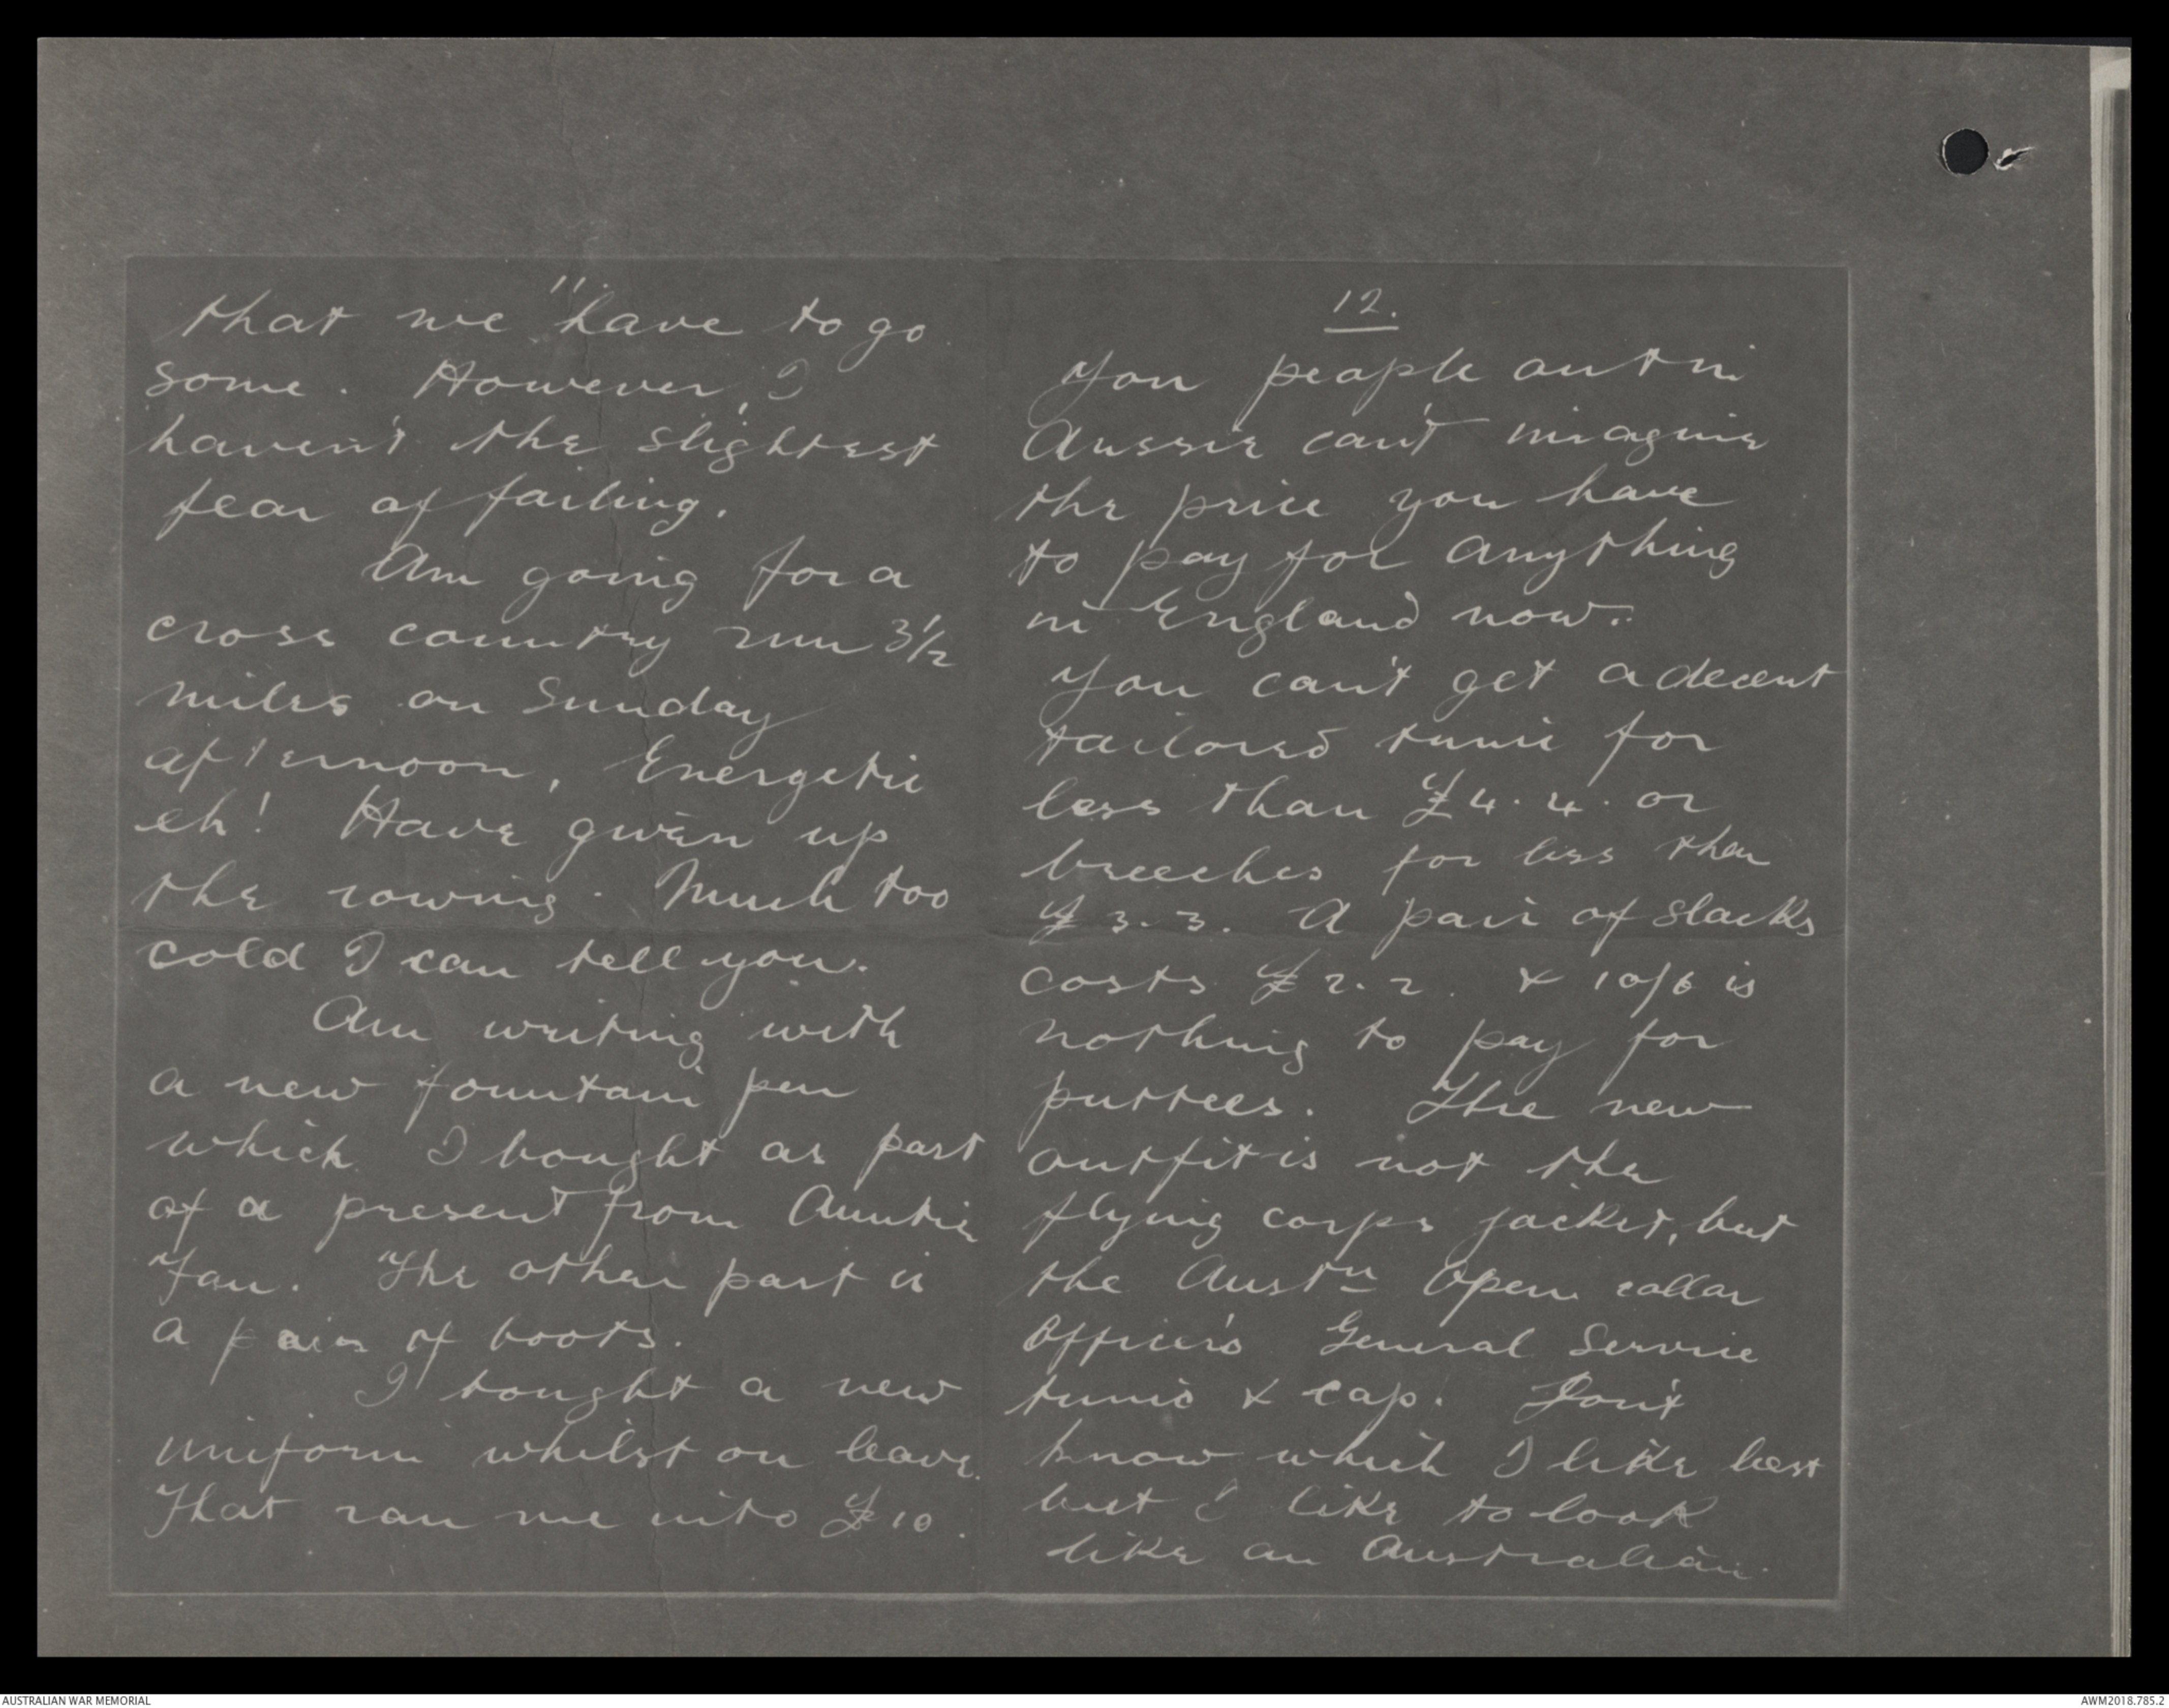 11.
that we have to go
some. However, I
haven't the slightest
fear of failing.
Am going for a
cross country run 3 1/2
miles on Sunday
afternoon, Energetic
eh! Have given up
the rowing. Much too
cold I can tell you.
Am writing with
a new fountain pen
which I bought as part
of a present from Auntie
Fan. The other part is
a pair of boots.
I bought a new
uniform whilst on leave.
That ran me into £10.
12.
You people out in
Aussie can't imagine
the price you have
to pay for anything
in England now.
You can't get a decent
tailored tunic for
less than £4.4. or
breeches for less than
£3.3. A pair of slacks
costs £2.2. & 10/6 is
nothing to pay for
puttees. The new
outfit is not the
flying corps jacket, but
the Austn Open collar
Officer's General Service
tunic & cap. Don't
know which I like best
but I like to look
like an Australian.
AUSTRALIAN WAR MEMORIAL
AWM2018.785.2